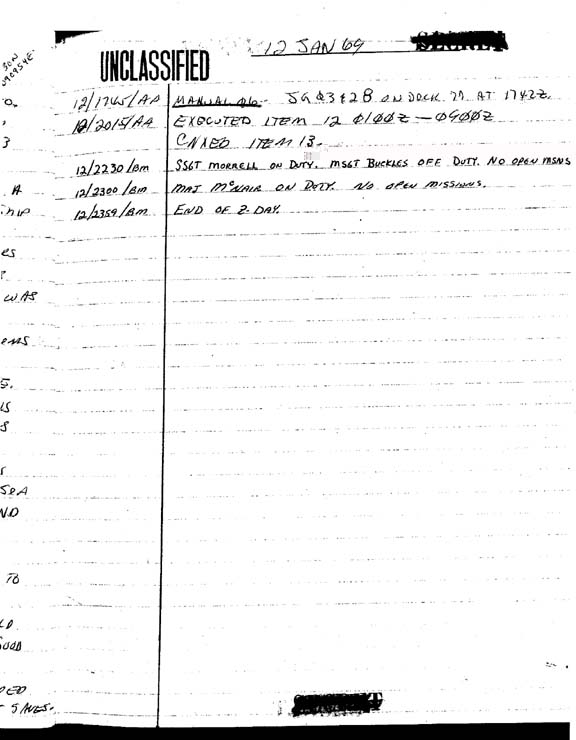 UNCLASSIFIED
12 JAN 69
SECRET
12/1745/AA MANUAL Ø6- JG Ø3 & 2B ON DOCK AT 1742Z.
12/2015/AA EXECUTED ITEM 12 Ø1ØØZ - Ø9ØØZ
CNXED ITEM 13.
12/2230/BM SSGT MORRELL ON DUTY. MSGT BUCKLES OFF DUTY. NO OPEN MSNS
12/2300/BM MAJ McNAIR ON DUTY. NO OPEN MISSIONS.
12/2359/BM END OF Z-DAY.
SON
O.
3
A
HIP
ES
WAS
EMS
S.
LS
S
SEA
ND
TO
LD
GOOD
DED
SAVES.